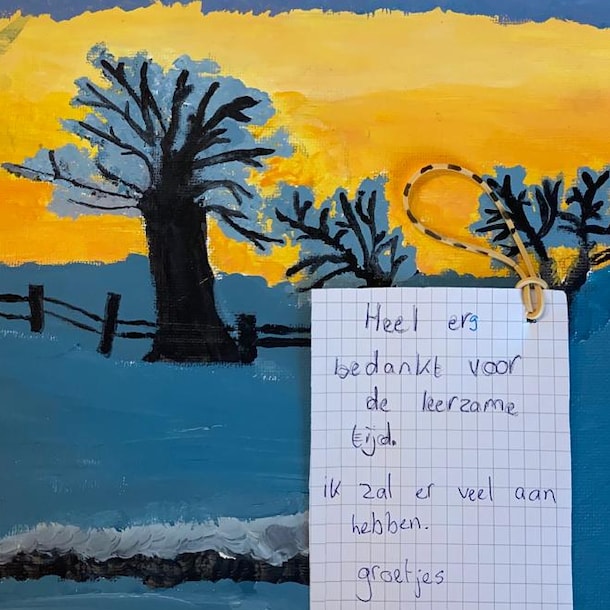 Heel erg
bedankt voor
de leerzame
tijd.
ik zal er veel aan
hebben.
groetjes